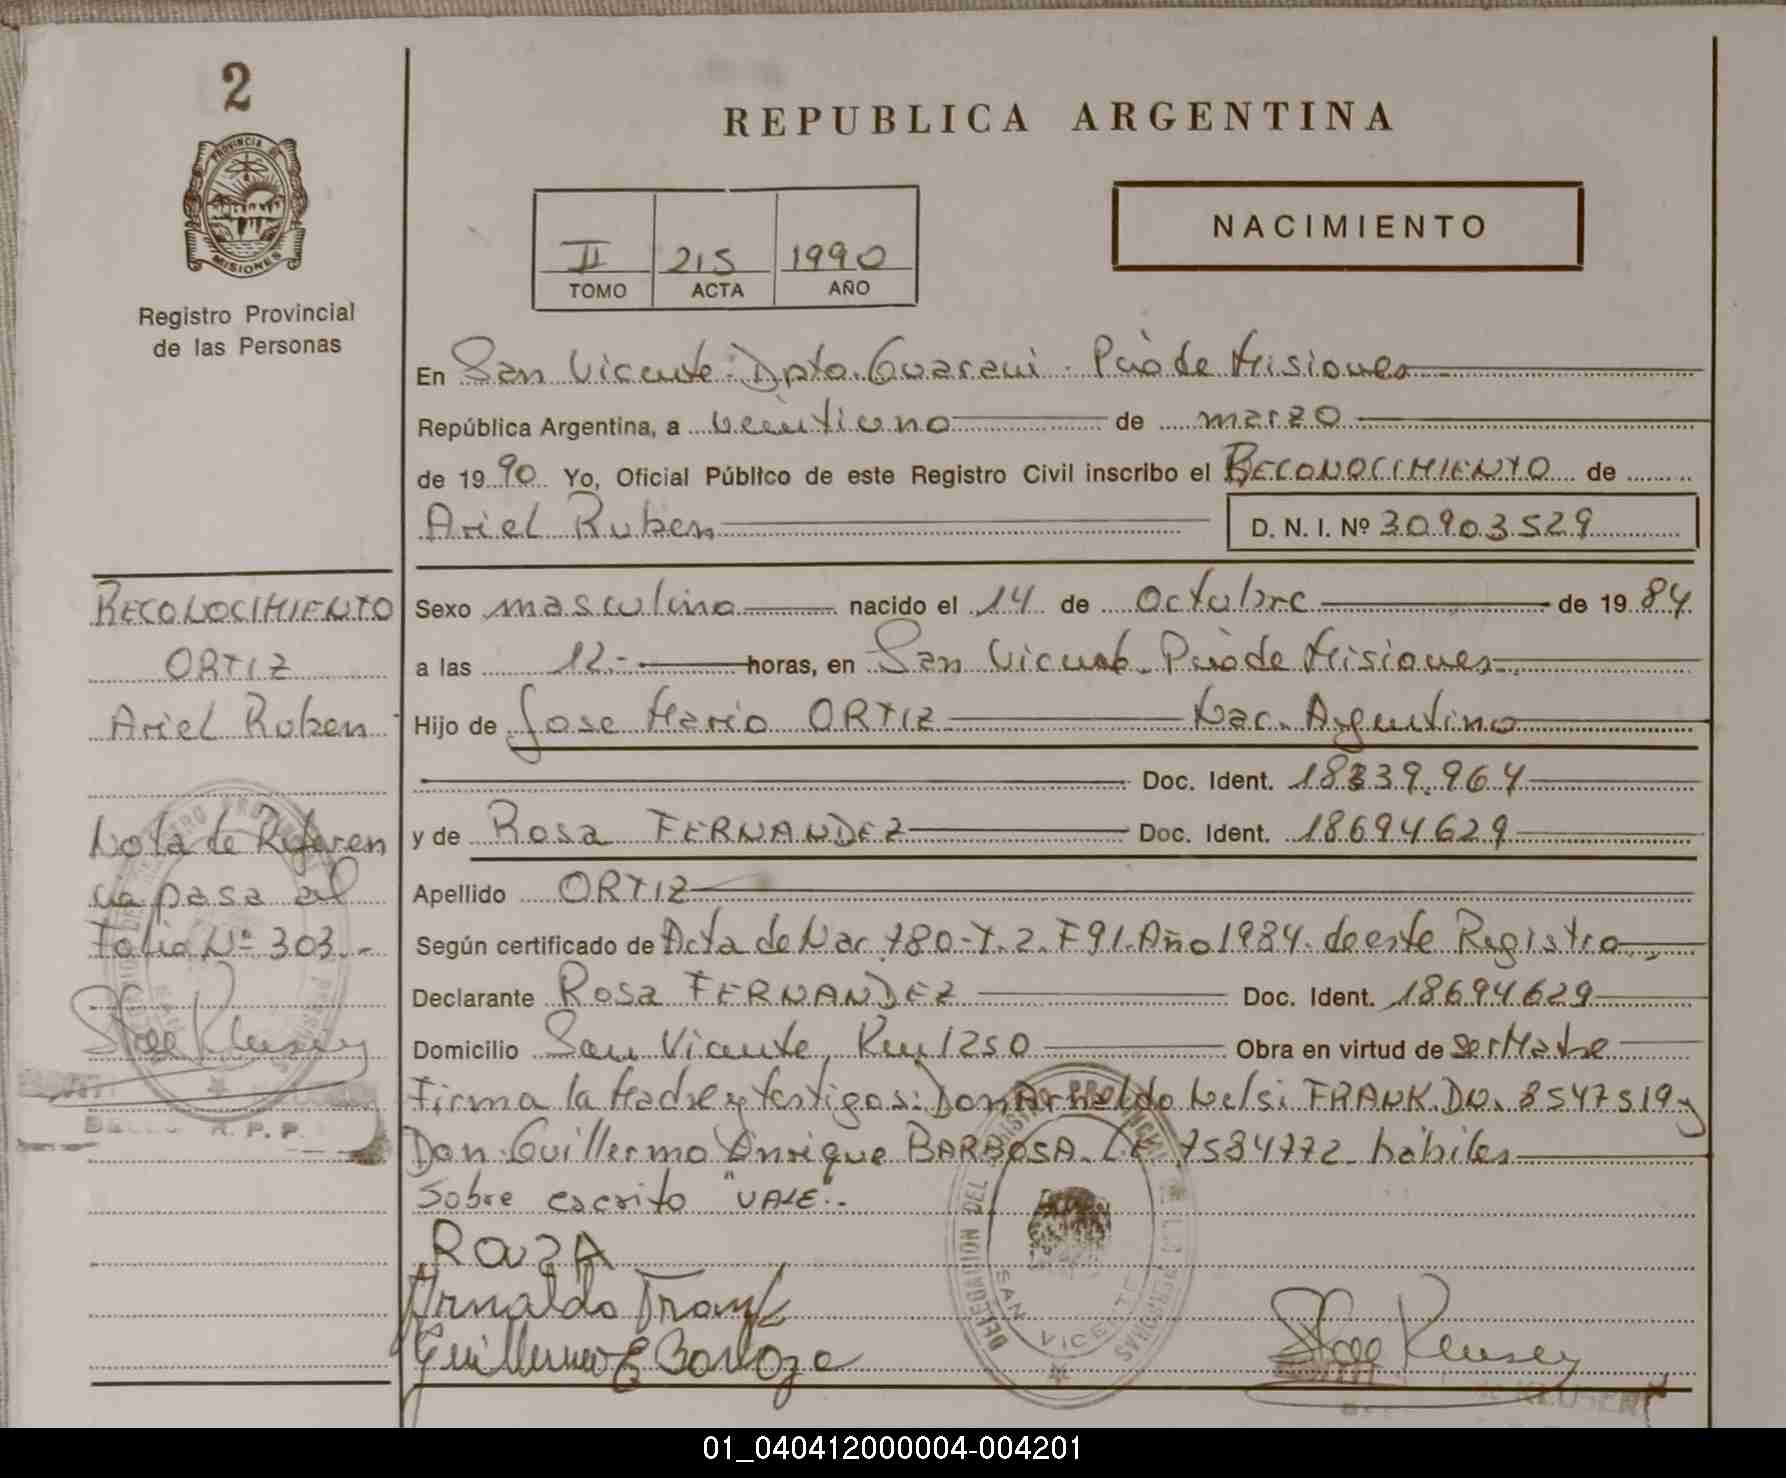 2
PROVINCIA DE
MISIONES
Registro Provincial
de las Personas
REPUBLICA ARGENTINA
II 215 1990
TOMO ACTA AÑO
NACIMIENTO
En San Vicente. Dpto. Guarani. Pcia de Misiones
República Argentina, a veintiuno de marzo
de 1990 Yo, Oficial Público de este Registro Civil inscribo el RECONOCIMIENTO de
Ariel Ruben D. N. I. Nº 30903529
Sexo masculino nacido el 14 de Octubre de 1984
a las 12.- horas, en San Vicente. Pcia de Misiones
Hijo de Jose Mario ORTIZ Nac. Argentino
Doc. Ident. 18339.964
y de Rosa FERNANDEZ Doc. Ident. 18694629
Apellido ORTIZ
Según certificado de Acta de Nac 780-T.2.F91.Año 1984. de este Registro
Declarante Rosa FERNANDEZ Doc. Ident. 18694629
Domicilio San Vicente, Km 1250 Obra en virtud de ser Madre
Firma la Madre y testigos: Don Arnaldo Nelsi FRANK. DNI. 8547519 y
Don Guillermo Enrique BARBOSA. LE 7584772 habiles
Sobre escrito "VALE".-
ROUZA
Arnaldo Frank
Guillermo E Barboza
RECONOCIMIENTO
ORTIZ
Ariel Ruben
Nota de Referen
cia pasa al
Folio Nº 303.-
DELEGACION DEL REGISTRO PROVINCIAL DE LAS PERSONAS
SAN VICENTE
01_040412000004-004201